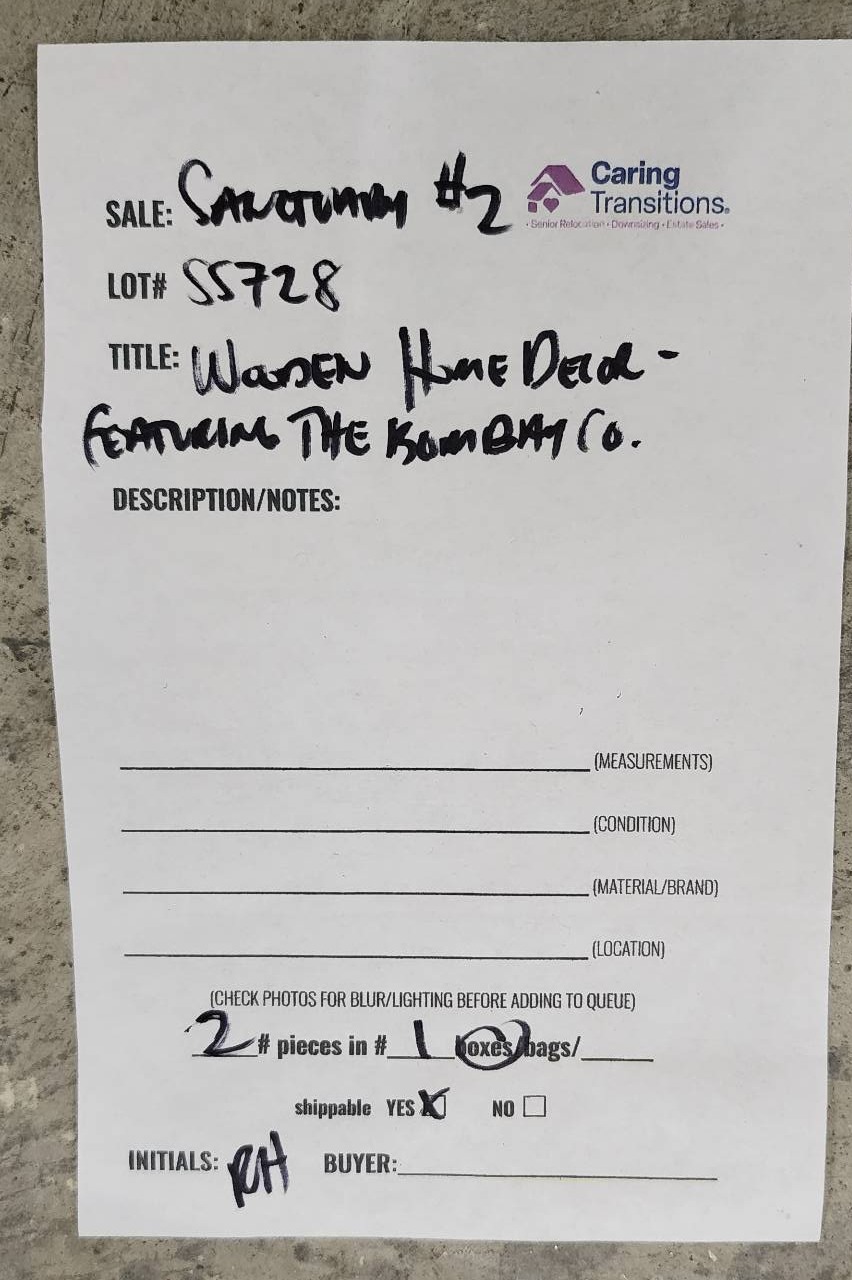 SALE: SANCTUARY #2
Caring
Transitions.
• Senior Relocation • Downsizing • Estate Sales •
LOT# SS728
TITLE: WOODEN HOME DECOR -
FEATURING THE BOMBAY CO.
DESCRIPTION/NOTES:
(MEASUREMENTS)
(CONDITION)
(MATERIAL/BRAND)
(LOCATION)
(CHECK PHOTOS FOR BLUR/LIGHTING BEFORE ADDING TO QUEUE)
2 # pieces in # 1 boxes/bags/
shippable YES X NO
INITIALS: RH BUYER: